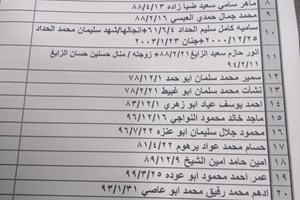 ٨ ماهر سامي سعيد ضبا زاده ٨٨/٤/١٣
٩ محمد جمال حمدي العبسي ٨٨/٢/١٦
١٠ ساميه كامل سليم الحداد ٦١/٦/٤+انجالها/شهد سليمان محمد الحداد
٢٠٠٠/١٢/٢٥+جنان ٢٠٠٣/١/٢٣
١١ انور حازم سعيد الزايغ ٨٨/٢/٢١+ زوجته / منال حسنين حسان الزايغ
٩٤/٢/١١
١٢ سمير محمد سلمان ابو حمد ٧٨/١/١٢
١٣ نشأت محمد سلمان ابو غبيط ٧٨/٢/٢١
١٤ احمد يوسف عياد ابو زهري ٨٣/١/١٢
١٥ ماجد خالد محمود النواجي ٩٦/١/١٦
١٦ محمود جلال سليمان ابو عنزه ٩٦/٧/٢٢
١٧ حسام محمد عواد برهوم ٨١/٤/٢٢
١٨ امين حامد امين الشيخ ٨٩/١٢/٩
١٩ عمر احمد محمود ابو عوده ٩٩/٣/٢٥
٢٠ ادهم محمد رفيق محمد ابو عاصي ٩٣/١/٣١